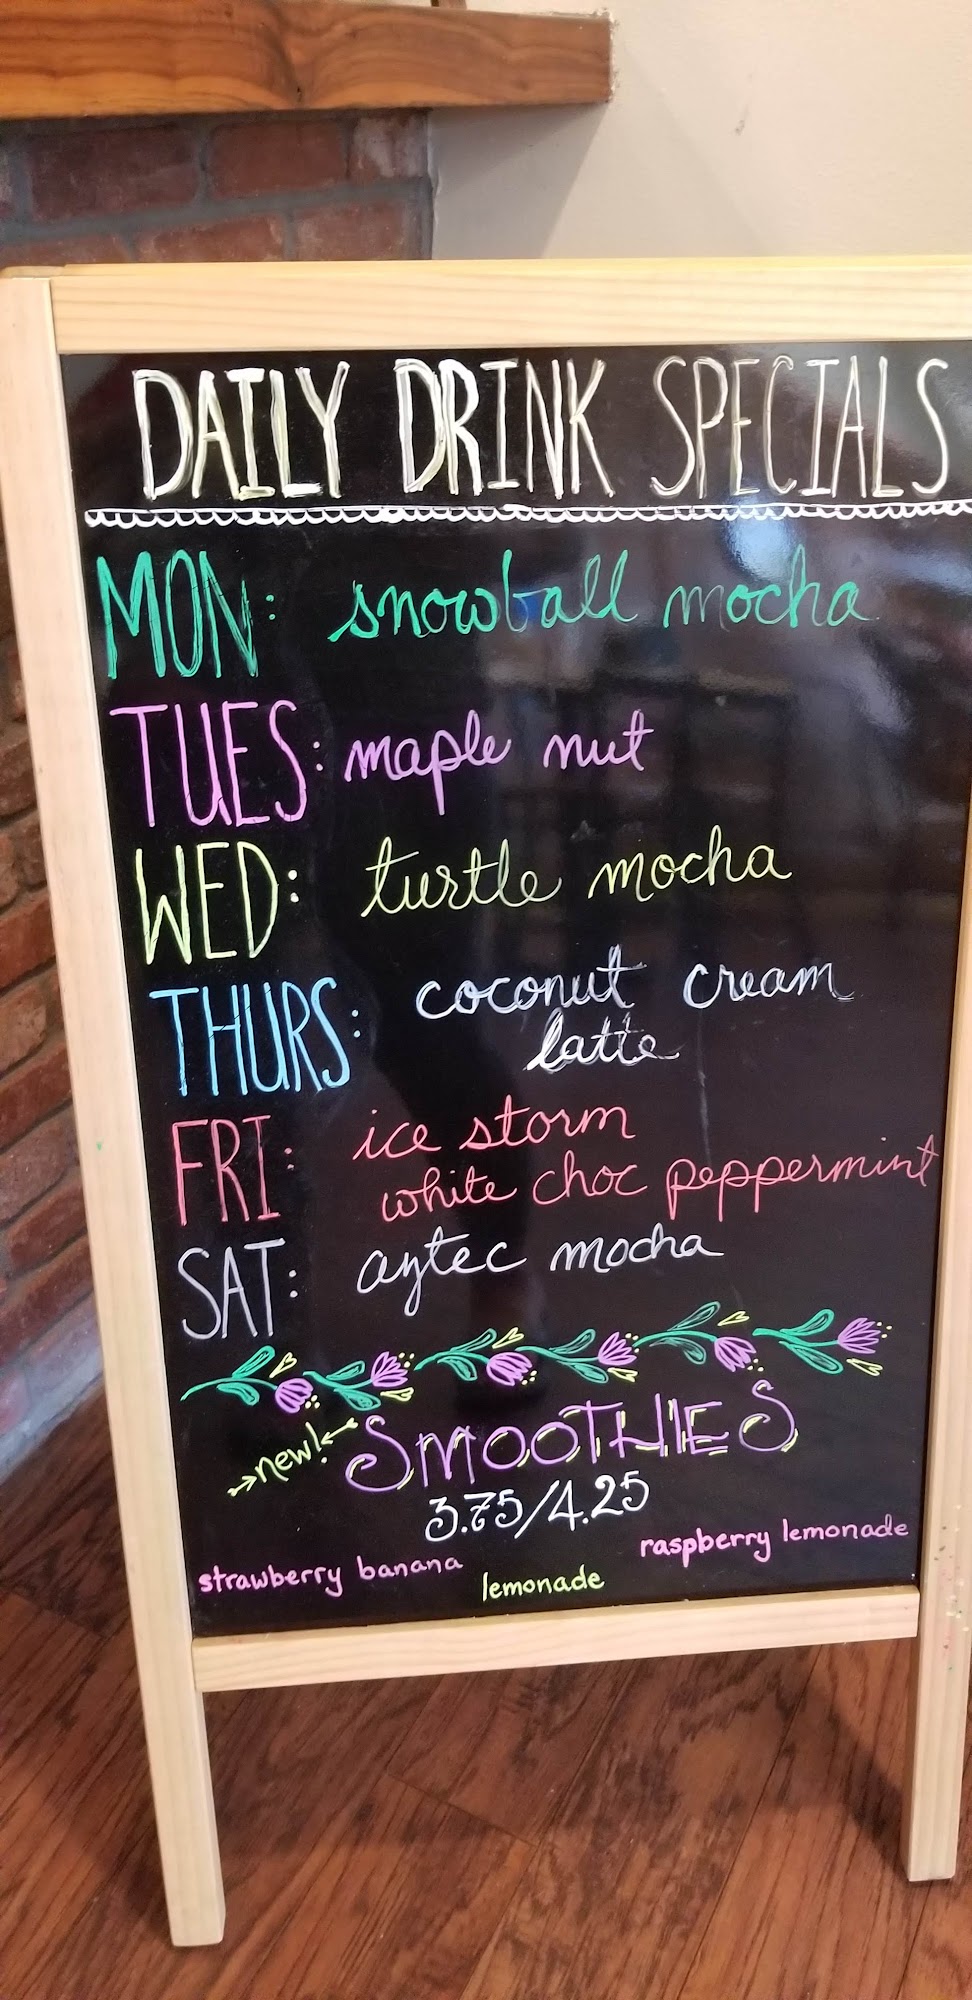 DAILY DRINK SPECIALS
MON: snowball mocha
TUES: maple nut
WED: turtle mocha
THURS: coconut cream
latte
FRI: ice storm
white choc peppermint
SAT: aztec mocha
new! SMOOTHIES
3.75/4.25
strawberry banana lemonade raspberry lemonade